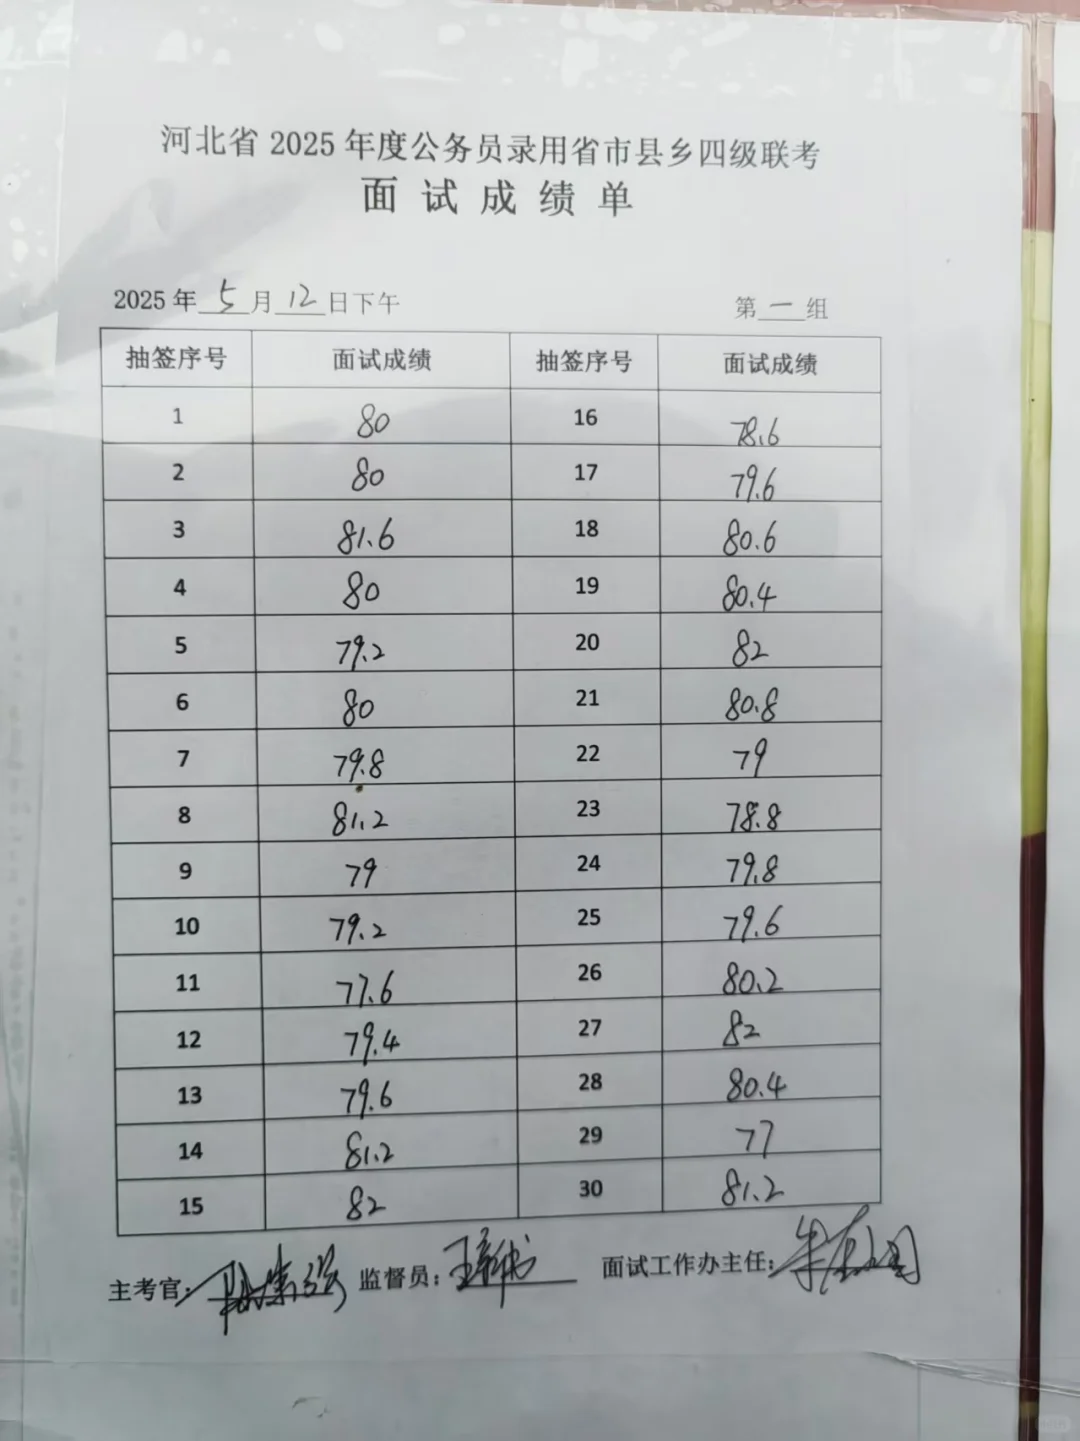 河北省 2025 年度公务员录用省市县乡四级联考
面试成绩单
2025 年 5 月 12 日下午 第 一 组
抽签序号 面试成绩 抽签序号 面试成绩
1 80 16 78.6
2 80 17 79.6
3 81.6 18 80.6
4 80 19 80.4
5 79.2 20 82
6 80 21 80.8
7 79.8 22 79
8 81.2 23 78.8
9 79 24 79.8
10 79.2 25 79.6
11 77.6 26 80.2
12 79.4 27 82
13 79.6 28 80.4
14 81.2 29 77
15 82 30 81.2
主考官: 监督员: 面试工作办主任: